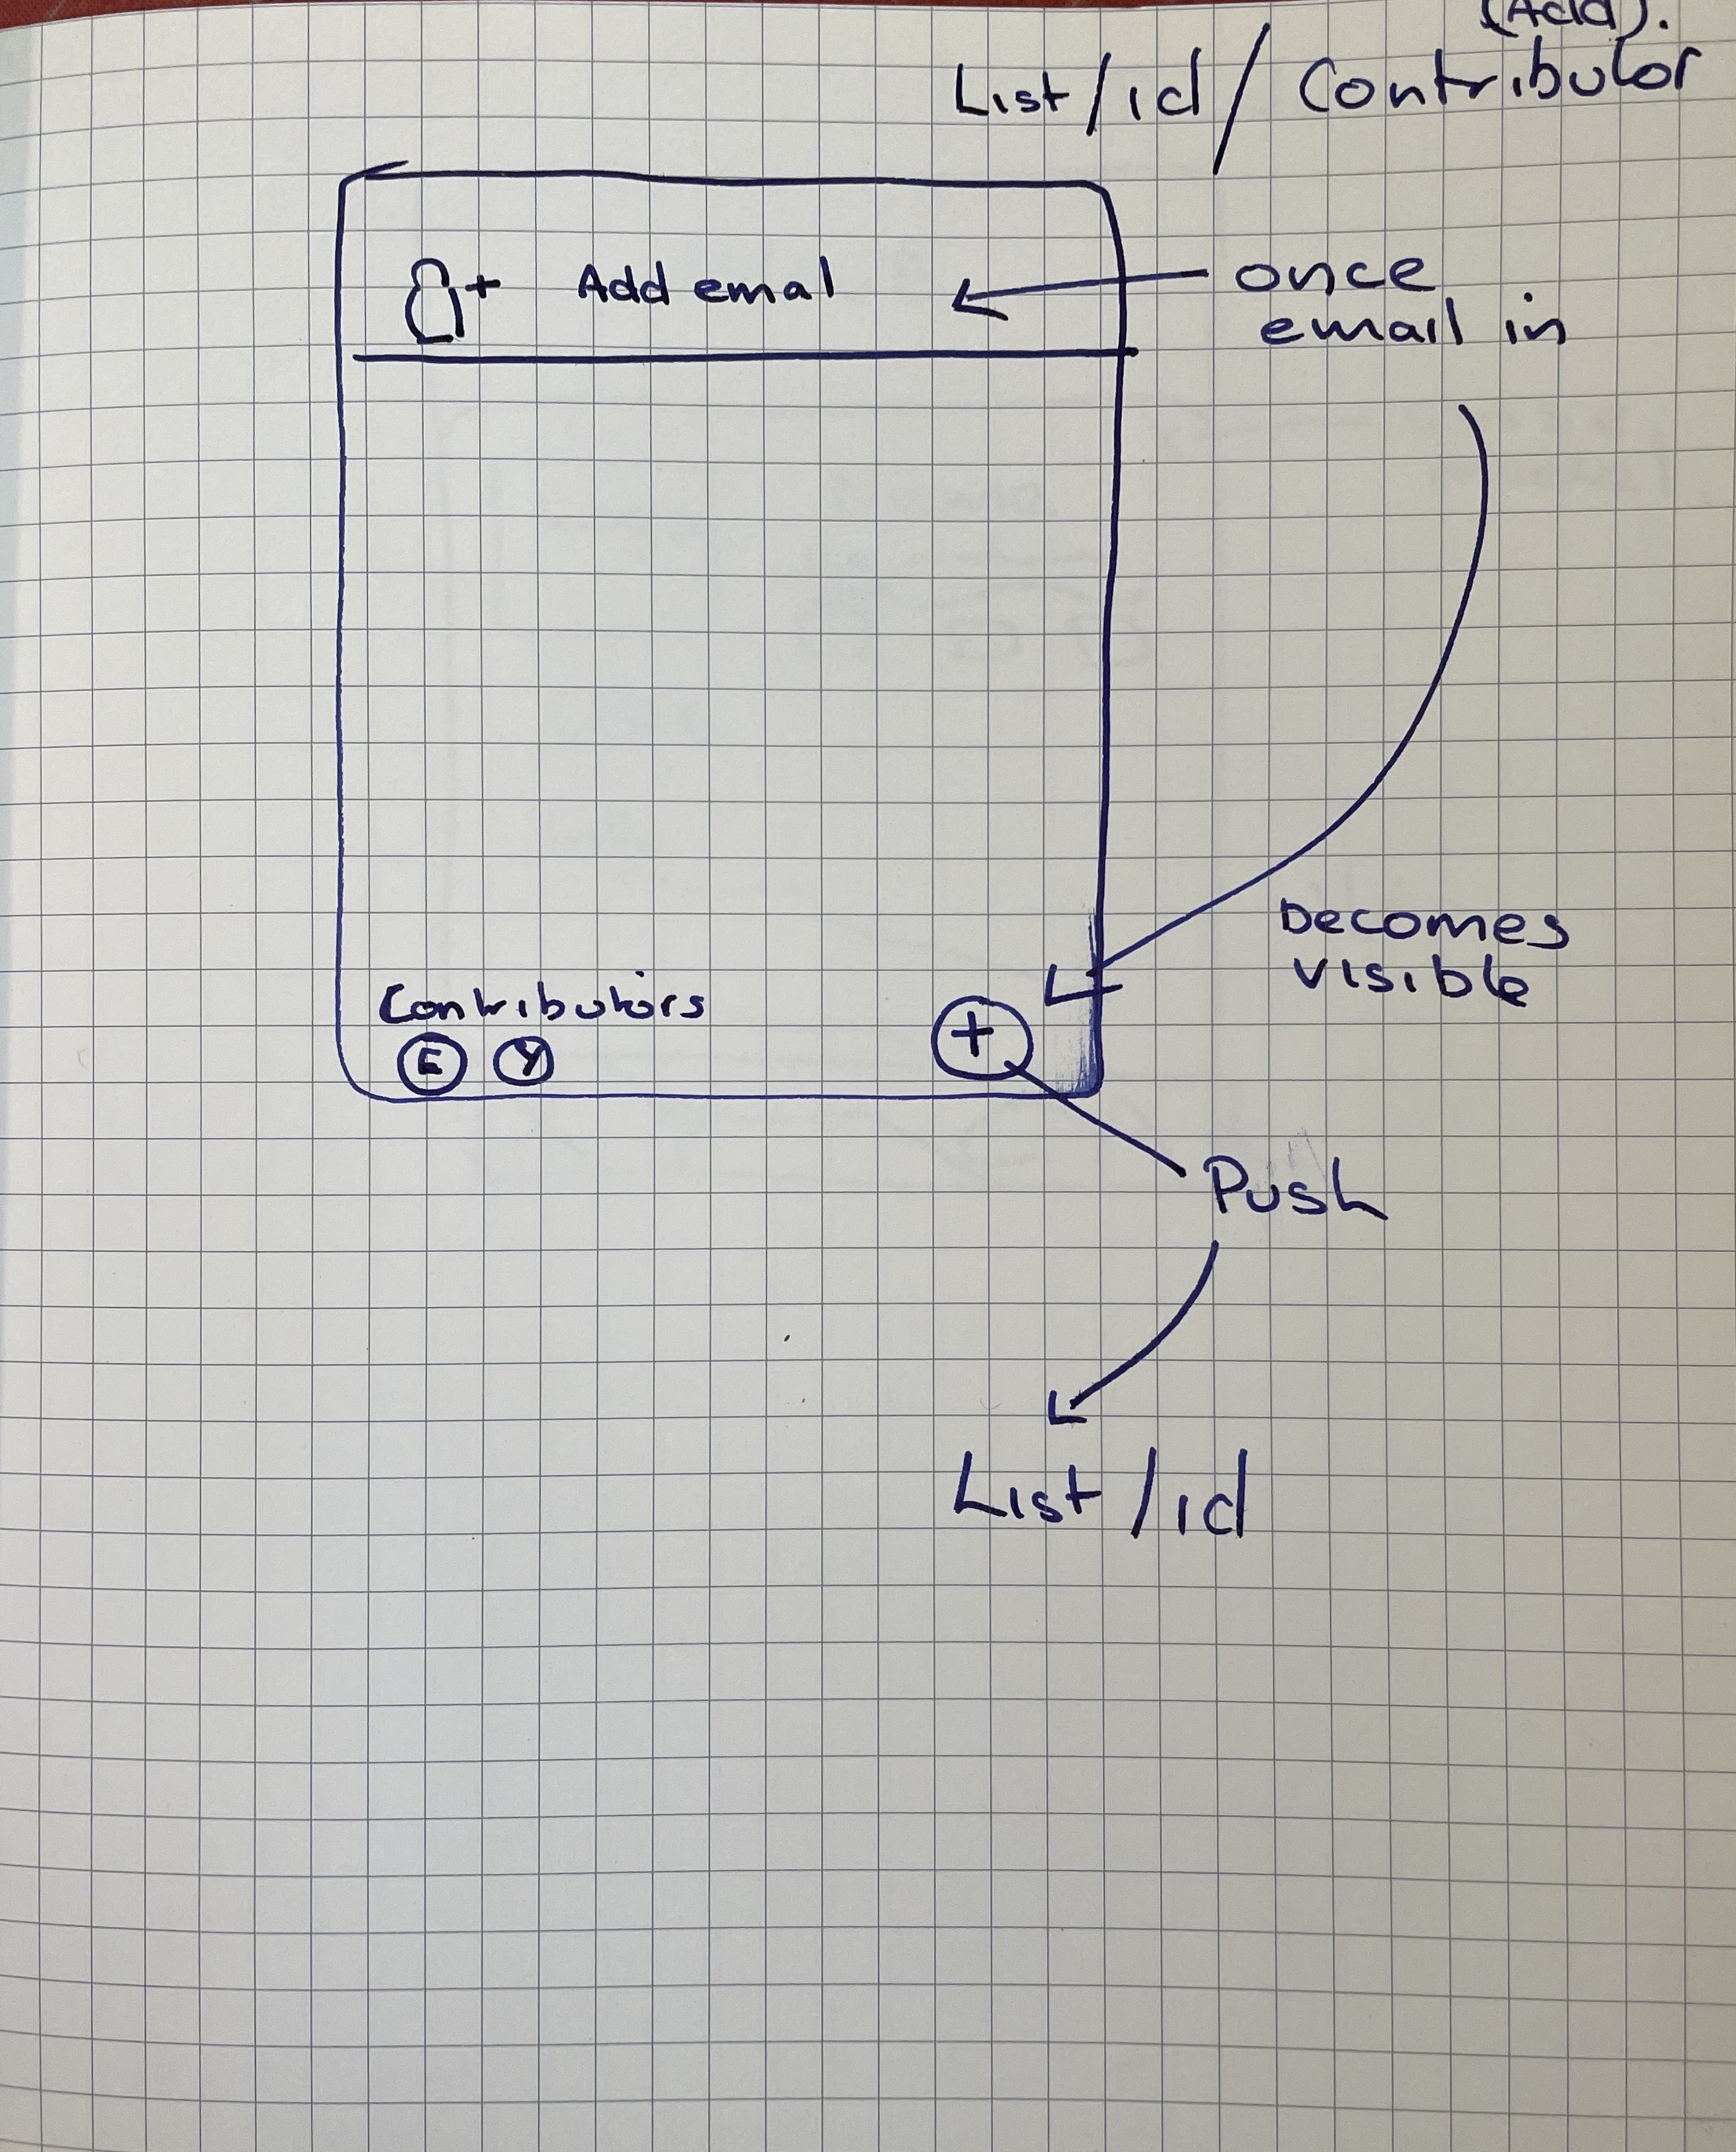 (Add).
List/id/Contributor
+ Add emal
once
email in
becomes
visible
Contributors
E Y
+
Push
List/id